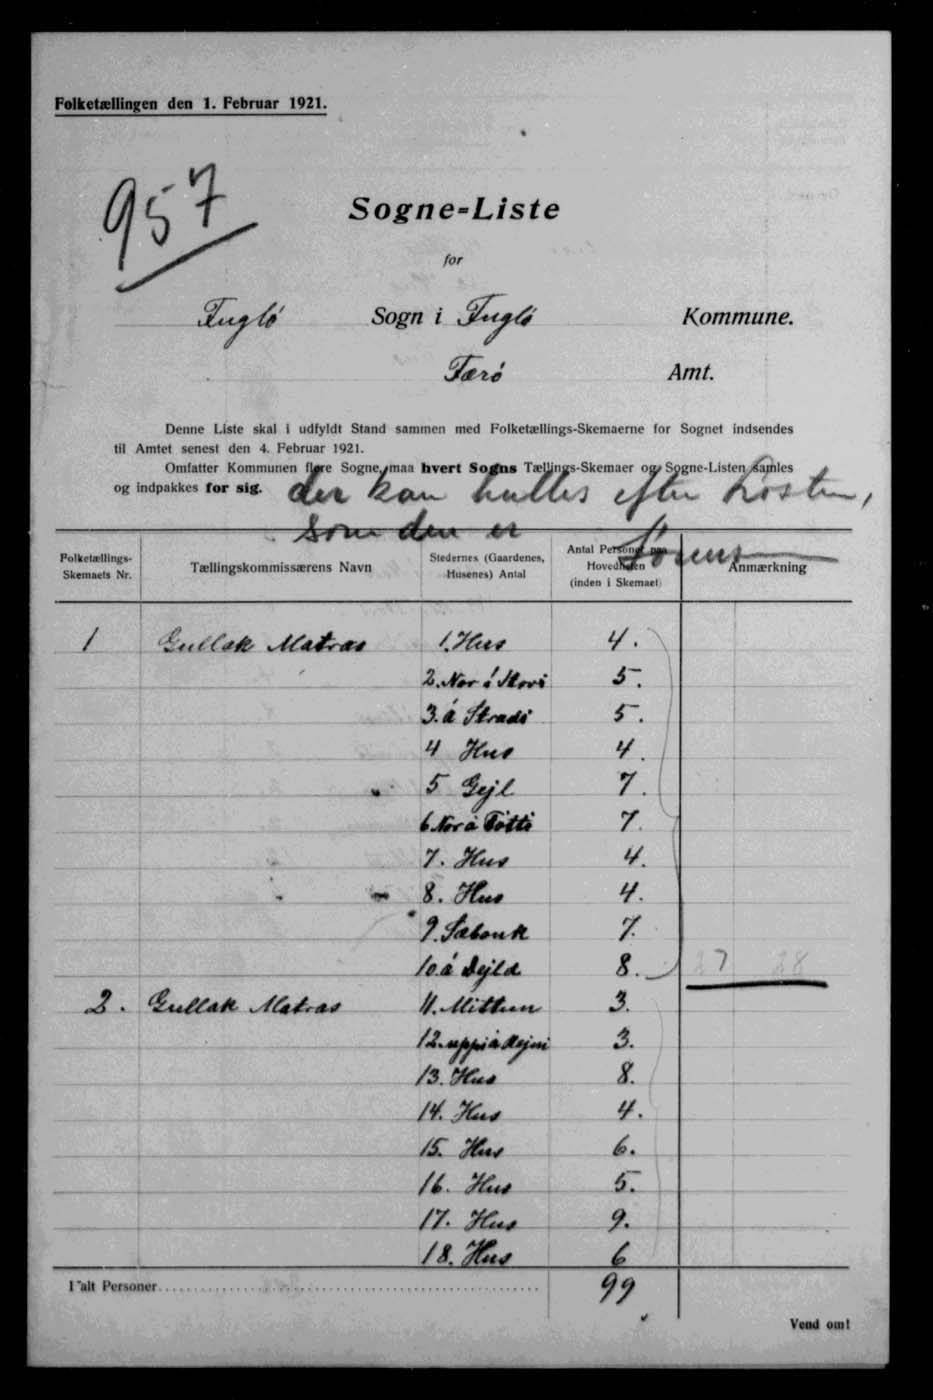 Folketællingen den 1. Februar 1921.
957
Sogne=Liste
for
Fuglö Sogn i Fuglö Kommune.
Færö Amt.
Denne Liste skal i udfyldt Stand sammen med Folketællings-Skemaerne for Sognet indsendes
til Amtet senest den 4. Februar 1921.
Omfatter Kommunen flere Sogne, maa hvert Sogns Tællings-Skemaer og Sogne-Listen samles
og indpakkes for sig.
der kan hulles efter Listen,
som den er
Folketællings-
Skemaets Nr.
Tællingskommissærens Navn
Stedernes (Gaardenes,
Husenes) Antal
Antal Personer paa
Hovedlisten
(inden i Skemaet)
Anmærkning
1 Gullak Matras 1. Hus 4.
2. Nor á 5.
3. á Stradi 5.
4 Hus 4.
5 Gejl 7.
6. Nor á Tötti 7.
7. Hus 4.
8. Hus 4.
9. 7.
10. á Dejld 8. 27 28
2. Gullak Matras 11. Mittun 3.
12. uppi á 3.
13. Hus 8.
14. Hus 4.
15. Hus 6.
16. Hus 5.
17. Hus 9.
18. Hus 6
I alt Personer 99
Vend om!